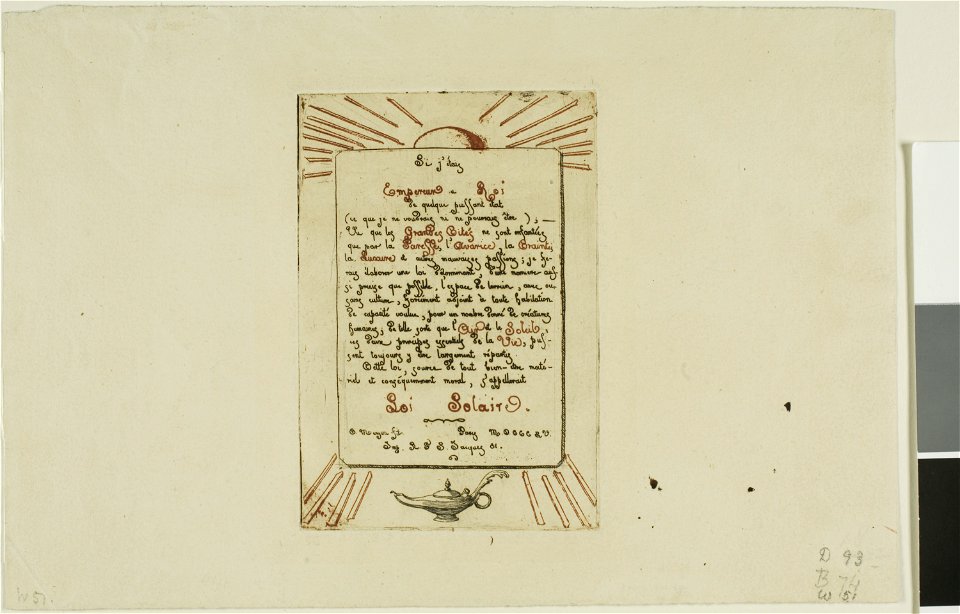 Si j'étais
Empereur ou Roi
de quelque puissant état
(ce que je ne voudrais ni ne pourrais être); —
Vu que les Grandes Cités ne sont enfantées
que par la Paresse, l'Avarice, la Crainte,
la Luxure et autres mauvaises passions; je fe-
rais élaborer une loi déterminant, d'une manière aus-
si précise que possible, l'espace de terrain, avec ou
sans culture, forcément adjoint à toute habitation
de capacité voulue, pour un nombre donné de créatures
humaines; de telle sorte que l'Air et le Soleil,
ces deux principes essentiels de la Vie, puis-
sent toujours y être largement répartis.
Cette loi, source de tout bien-être maté-
riel et conséquemment moral, s'appellerait
Loi Solaire.
C. Meryon ft. Paris
Imp. R. S. Jacques
D 93
B 74
W 51
W 51.